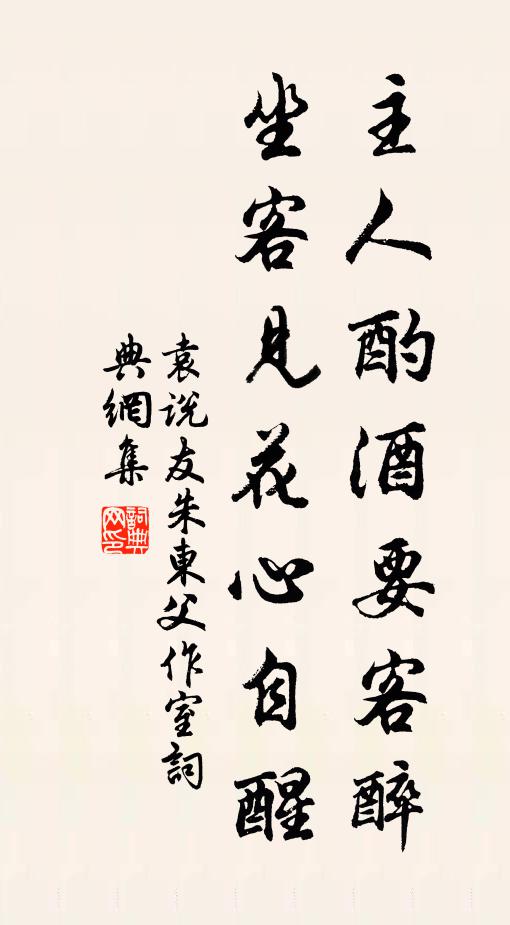 主人酌酒要客醉
坐客見花心自醒
袁說友朱東父作室詞
典網集
詞典網印